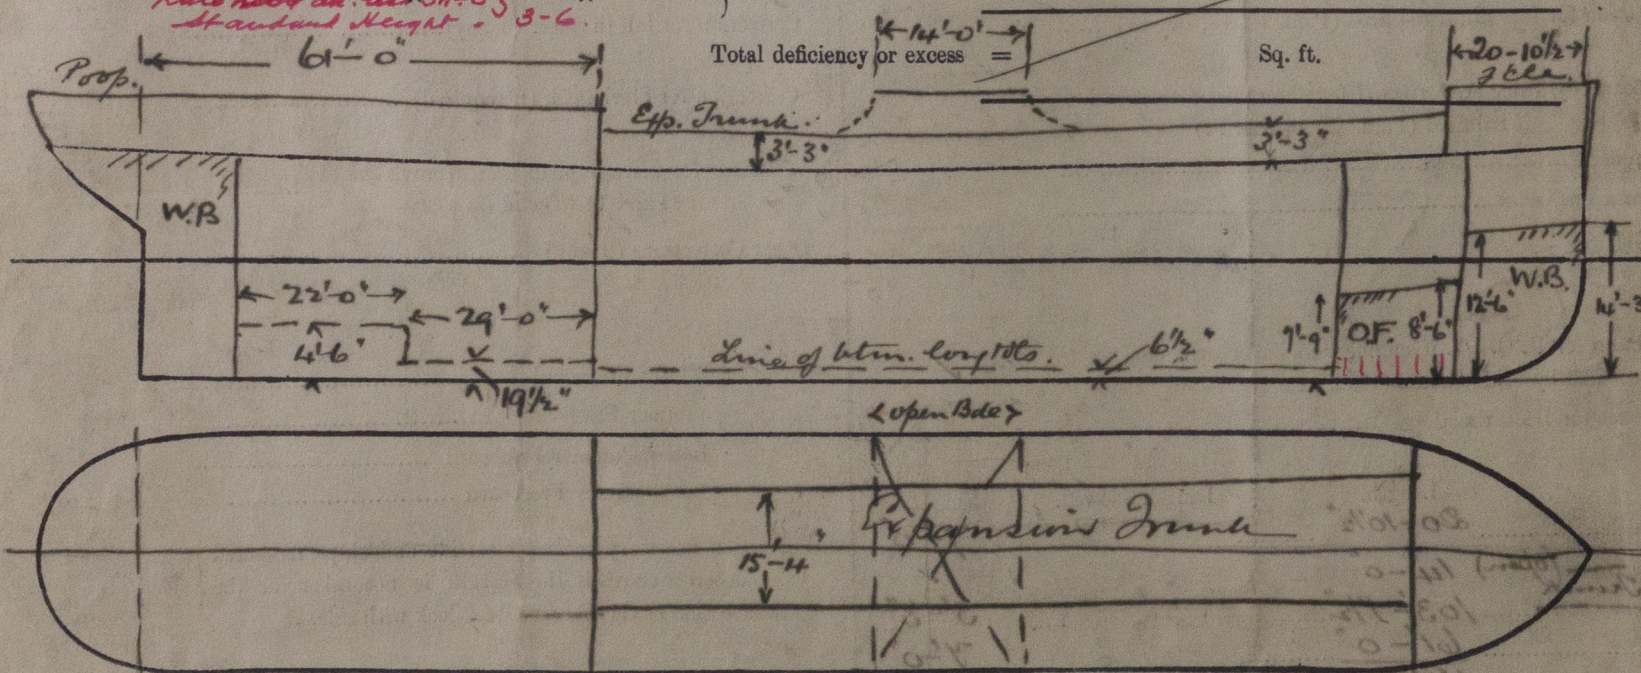 Standard Height = 3-6.
61'-0"
Total deficiency or excess =
14'-0"
Sq. ft.
20-10½"
Poop.
Exp. Trunk.
3'-3"
3'-3"
W.B
22'-0"
29'-0"
4'-6"
19½"
Line of btm. longtdls.
6½"
9'-9"
O.F.
8'-6"
12'-6"
W.B.
14'-3
<open Bde>
Expansion Trunk
15'-4"